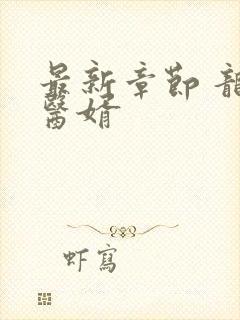 最新章節 龍
醫婿
虾寫